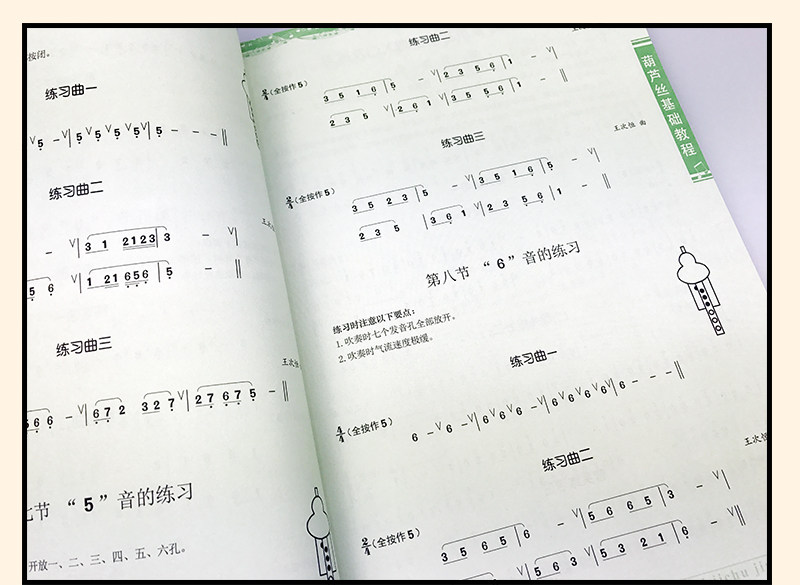 按闭。
练习曲一
V 5 – V| 5 V 5 V 5 V 5 V| 5 – – – ‖
练习曲二
– V| 3 1 2123 | 3 – V|
5 6 V| 1 21 656 | 5 – ‖
练习曲三
王次恒
566 – V| 67 2 32 7 V| 27 67 5 – ‖
七节 “5”音的练习
开放一、二、三、四、五、六孔。
练习曲二
2/4 (全按作5) 3 5 1 6 | 5 – V| 2 3 5 6 | 1 – V|
2 3 5 V| 2 6 1 V| 3 5 5 6 | 1 – ‖
练习曲三
王次恒 曲
2/4 (全按作5) 3 5 2 3 | 5 – V| 3 5 1 6 | 5 – V|
2 3 5 | 3 6 1 V| 2 3 5 6 | 1 – ‖
第八节 “6”音的练习
练习时注意以下要点：
1. 吹奏时七个发音孔全部放开。
2. 吹奏时气流速度极缓。
练习曲一
4/4 (全按作5) 6 – V 6 – V| 6 V 6 V 6 – V| 6 V 6 V 6 V 6 V| 6 – – – ‖
练习曲二
王次恒
2/4 (全按作5) 3 5 6 5 | 6 – V| 5 6 6 5 | 3 – V|
5 6 3 V| 5 3 2 1 | 6 – ‖
葫芦丝基础教程